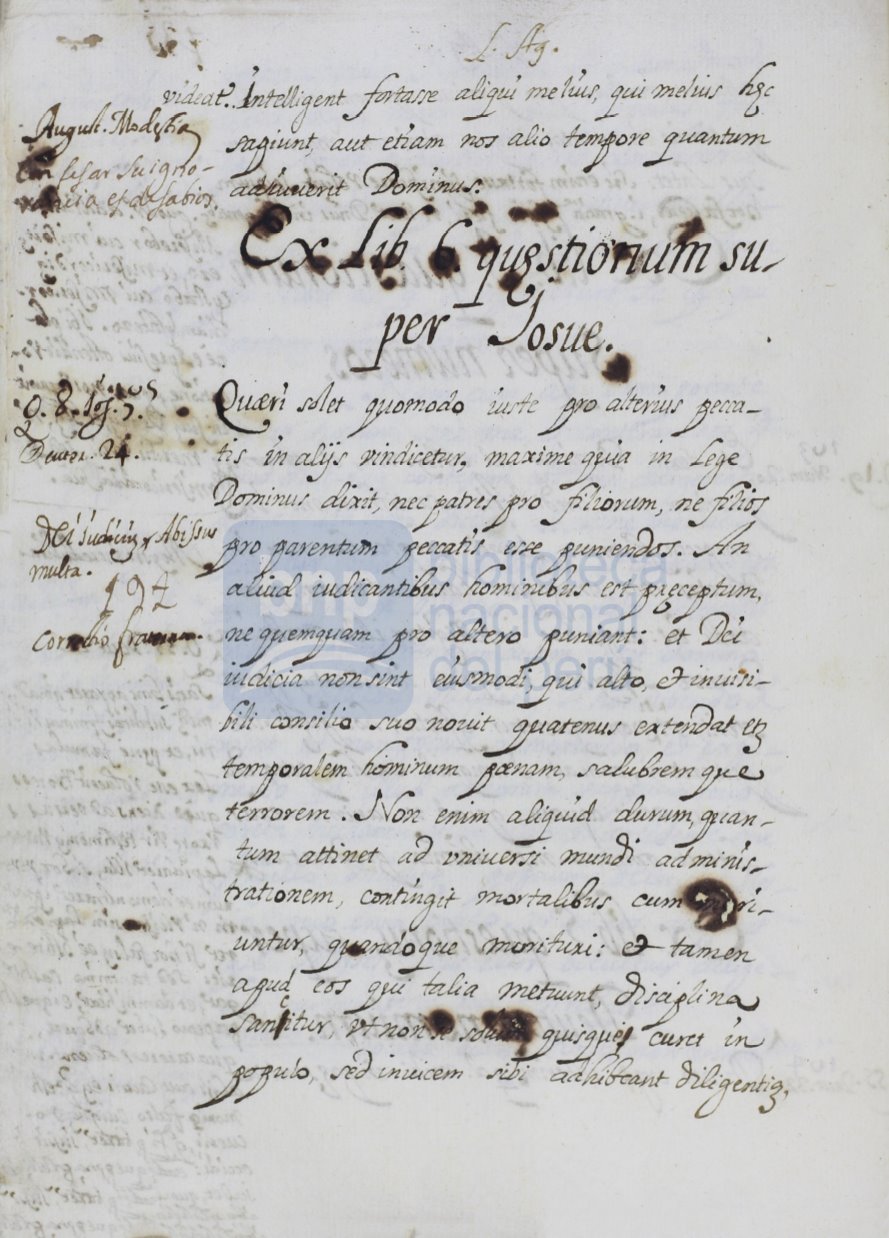 L. Ag.
videat. Intelligent fortasse aliqui melius, qui melius hęc
sapiunt, aut etiam nos alio tempore quantum
adiuuerit Dominus.
August. Modestia
Confesar su igno-
rancia es de sabios.
Ex Lib. 6. quęstionum su-
per Iosue.
Q. 8. Ios. 7.
Deuter. 24.
Quæri solet quomodo iuste pro alterius pecca-
tis in alijs vindicetur, maxime quia in Lege
Dominus dixit, nec patres pro filiorum, ne filios
pro parentum peccatis esse puniendos. An
aliud iudicantibus hominibus est pręceptum,
ne quemquam pro altero puniant: et Dei
iudicia non sint eiusmodi, qui alto, et inuisi-
bili consilio suo nouit quatenus extendat et
temporalem hominum pœnam, salubremque
terrorem. Non enim aliquid durum, quan-
tum attinet ad vniuersi mundi adminis-
trationem, contingit mortalibus cum mori-
untur, quandoque morituri: et tamen
apud eos qui talia metuunt, disciplina
sancitur, vt non se solum quisque curet in
populo, sed inuicem sibi adhibeant diligentię,
Dei iudiciũ Abissus
multa.
Cornelio
biblioteca
nacional
del perú
bnp